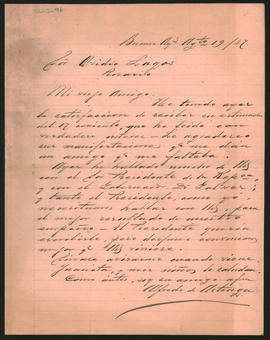 Buenos Ays Agto 19/87
Sor Ovidio Lagos
Rosario
Mi viejo Amigo.
He tenido ayer
la satisfaccion de recibir su estimada
del 17 corriente, que he leido con
verdadero interes. Le agradezco
sus manifestaciones, que me dan
un amigo que me faltaba.
Ayer he hablado de Vd
con el Sor Presidente de la
y con el Gobernador Dr Galvez;
y tanto el Presidente, como yo,
necesitamos hablar con Vd, para
el mejor resultado de nuestro
empeño. El Presidente queria
escribirle, pero despues convinimos
mejor que Vd viniera.
avisarme cuando viene.
Juanita, y mis niños le saludan.
Como antes, soy su amigo
Alfredo de Arteaga